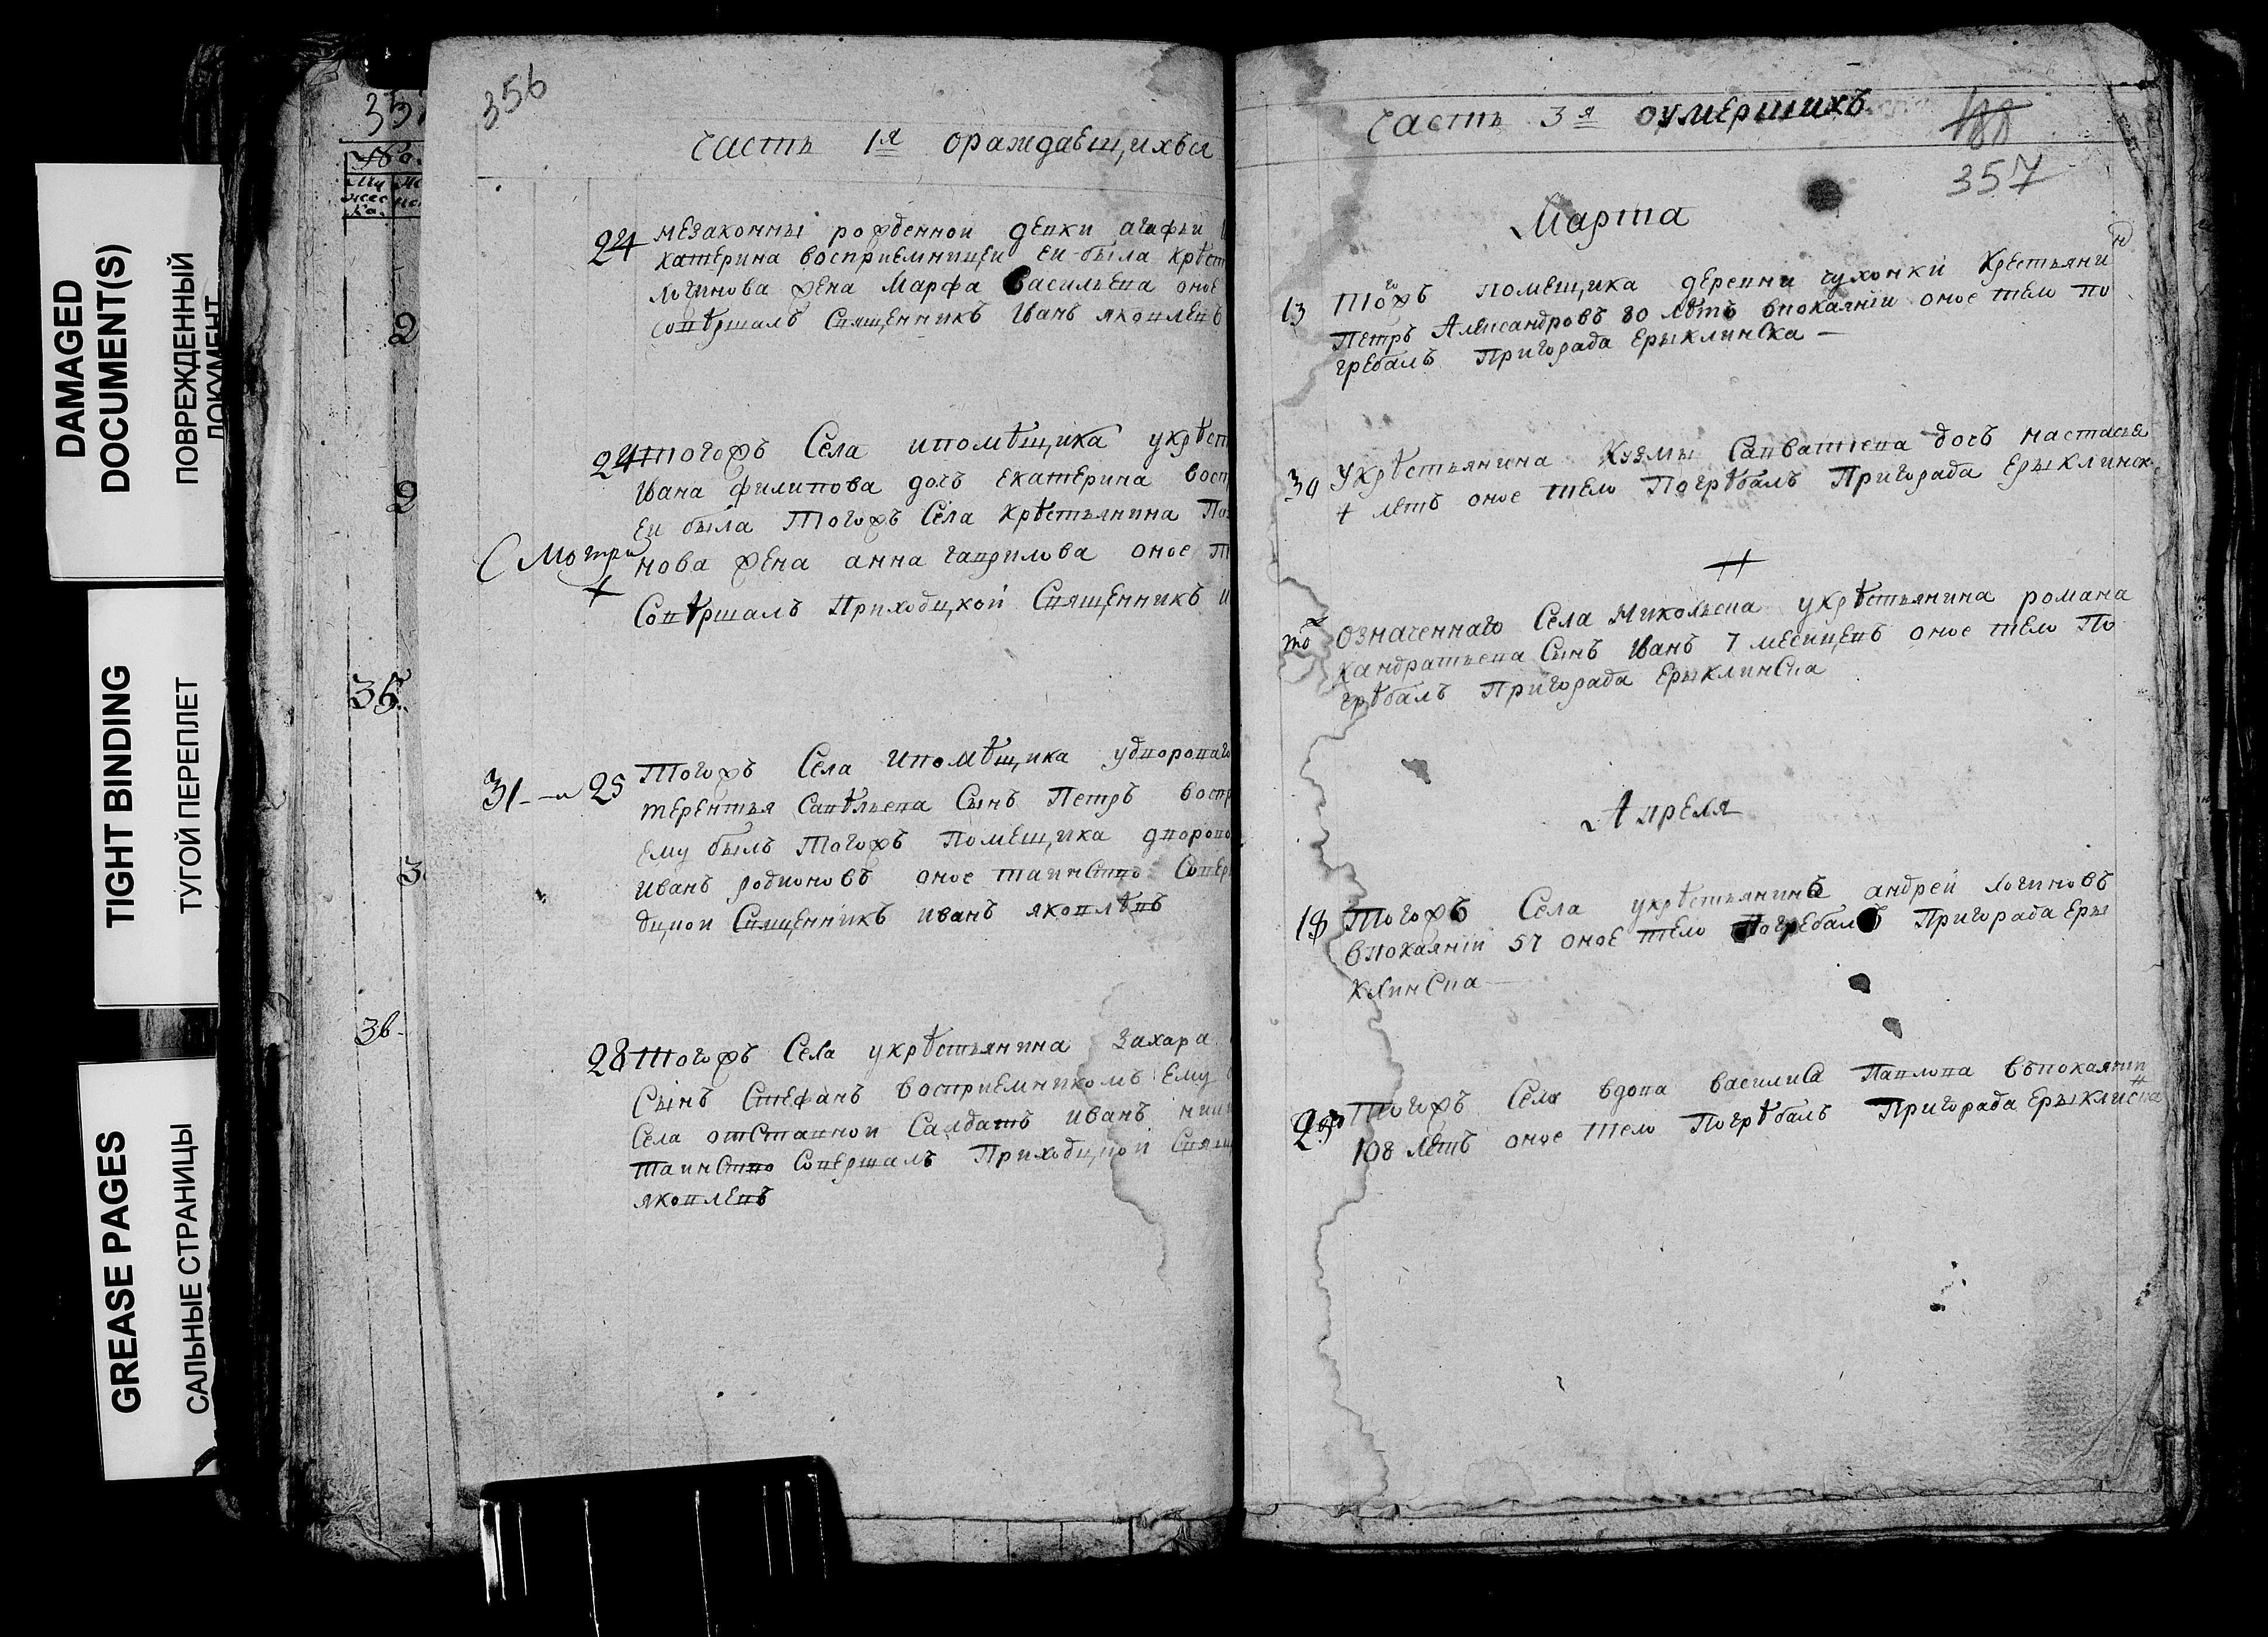 DAMAGED
DOCUMENT(S)
ПОВРЕЖДЕННЫЙ
ДОКУМЕНТ
TIGHT BINDING
ТУГОЙ ПЕРЕПЛЕТ
GREASE PAGES
САЛЬНЫЕ СТРАНИЦЫ
356
Часть 1я ораждаещихъся
24 незаконны рожденной девки агафьи
катерина восприемницеи еи была крѣст
логинова жена Марфа василева оное
совѣршалъ Священникъ Иванъ яковлевъ
24 тогожъ Села ипомѣщика укрѣст
Ивана филипова дочь екатерина восп
еи была тогожъ Села крѣстьянина
Смотри нова жена анна гаврилова оное
+ Совѣршалъ Приходцкой Священникъ
31 25 Тогожъ Села ипомѣщика удвороваго
терентья Савѣльева Сынъ Петръ воспр
ему былъ тогожъ Помещика дворово
иванъ родионовъ оное таинство Совер
дцкои Священникъ иванъ яковлѣвъ
28 тогожъ Села укрѣстьянина захара
Сынъ Стефанъ восприемникомъ ему
Села отставнои Салдатъ иванъ
таинство Совершалъ Приходцкои Свящ
яковлевъ
Часть 3я оумершихъ
188
357
Марта
13 Тогожъ помещика деревни чухонки крестьянинъ
Петръ Александровъ 80 лѣтъ впокаянии оное тело по
гребалъ Пригорада Ерыклинска
30 Укрѣстьянина Кузмы Савватиева дочь настасья
лѣтъ оное тело Погрѣбалъ Пригорада Ерыклинск
то означеннаго Села Никольска укрѣстьянина романа
кандратьева Сынъ Иванъ 7 месицевъ оное тело По
грѣбалъ Пригорада Ерыклинска
Апреля
18 Тогожъ Села укрѣстьянинъ андреи логиновъ
впокаянии 57 оное тело погребалъ Пригорада Еры
клинска
Тогожъ Села вдова василиса Павлова въпокаянии
108 лѣтъ оное тело Погрѣбалъ Пригорада Ерыклинска